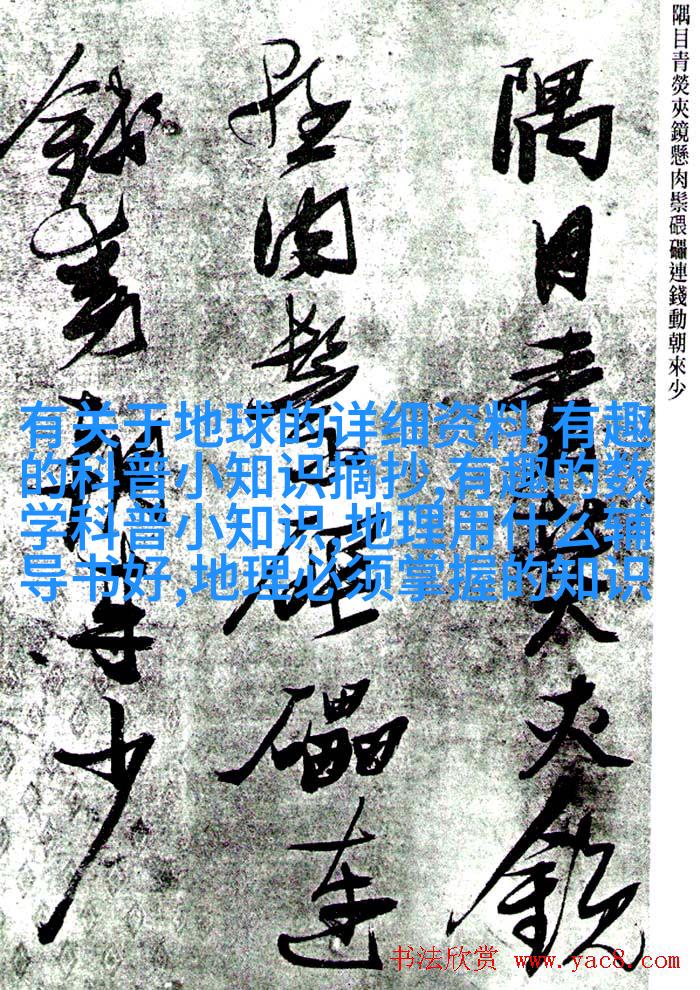 隅目青熒夾鏡懸肉鬃碨礧連錢動朝來少
隅目青熒夾鏡
懸肉鬃碨礧連
錢動朝來少
有关于地球的详细资料,有趣
的科普小知识摘抄,有趣的数
学科普小知识,地理用什么辅
导书好,地理必须掌握的知识
书法欣赏 www.yac8.com